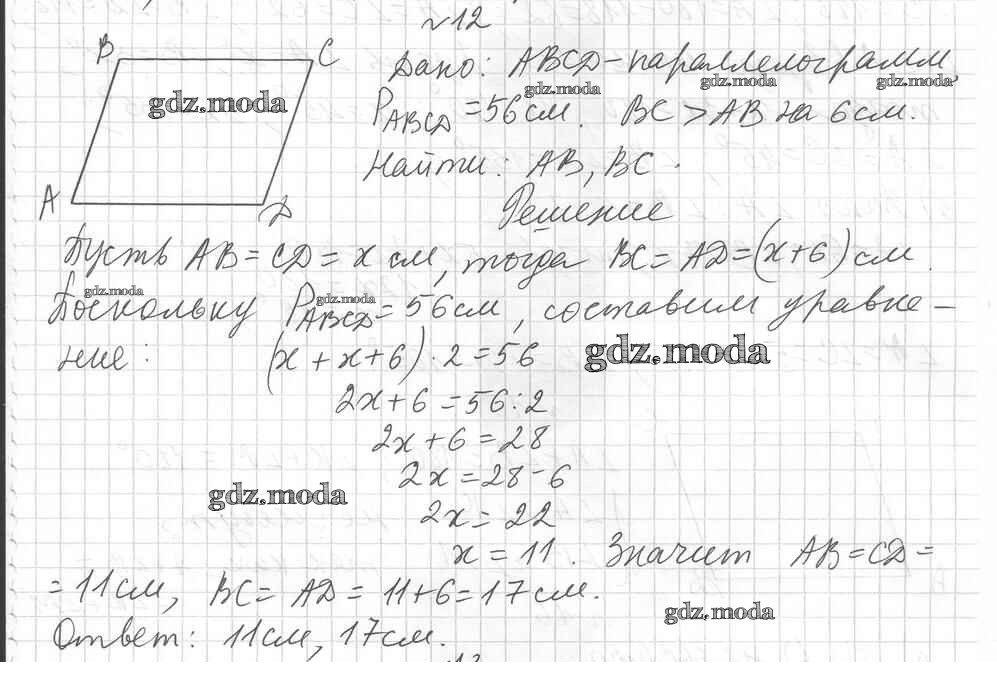 №12
B C
Дано: ABCD - параллелограмм,
gdz.moda gdz.moda gdz.moda gdz.moda
P ABCD = 56 см. BC > AB на 6 см.
Найти: AB, BC.
A D
Решение
Пусть AB = CD = x см, тогда BC = AD = (x+6) см.
gdz.moda gdz.moda
Поскольку P ABCD = 56 см, составим уравне-
ние: (x + x+6) · 2 = 56 gdz.moda
2x+6 = 56:2
2x+6 = 28
2x = 28-6
gdz.moda
2x = 22
x = 11. Значит AB = CD =
= 11 см, BC = AD = 11+6 = 17 см.
gdz.moda
Ответ: 11 см, 17 см.